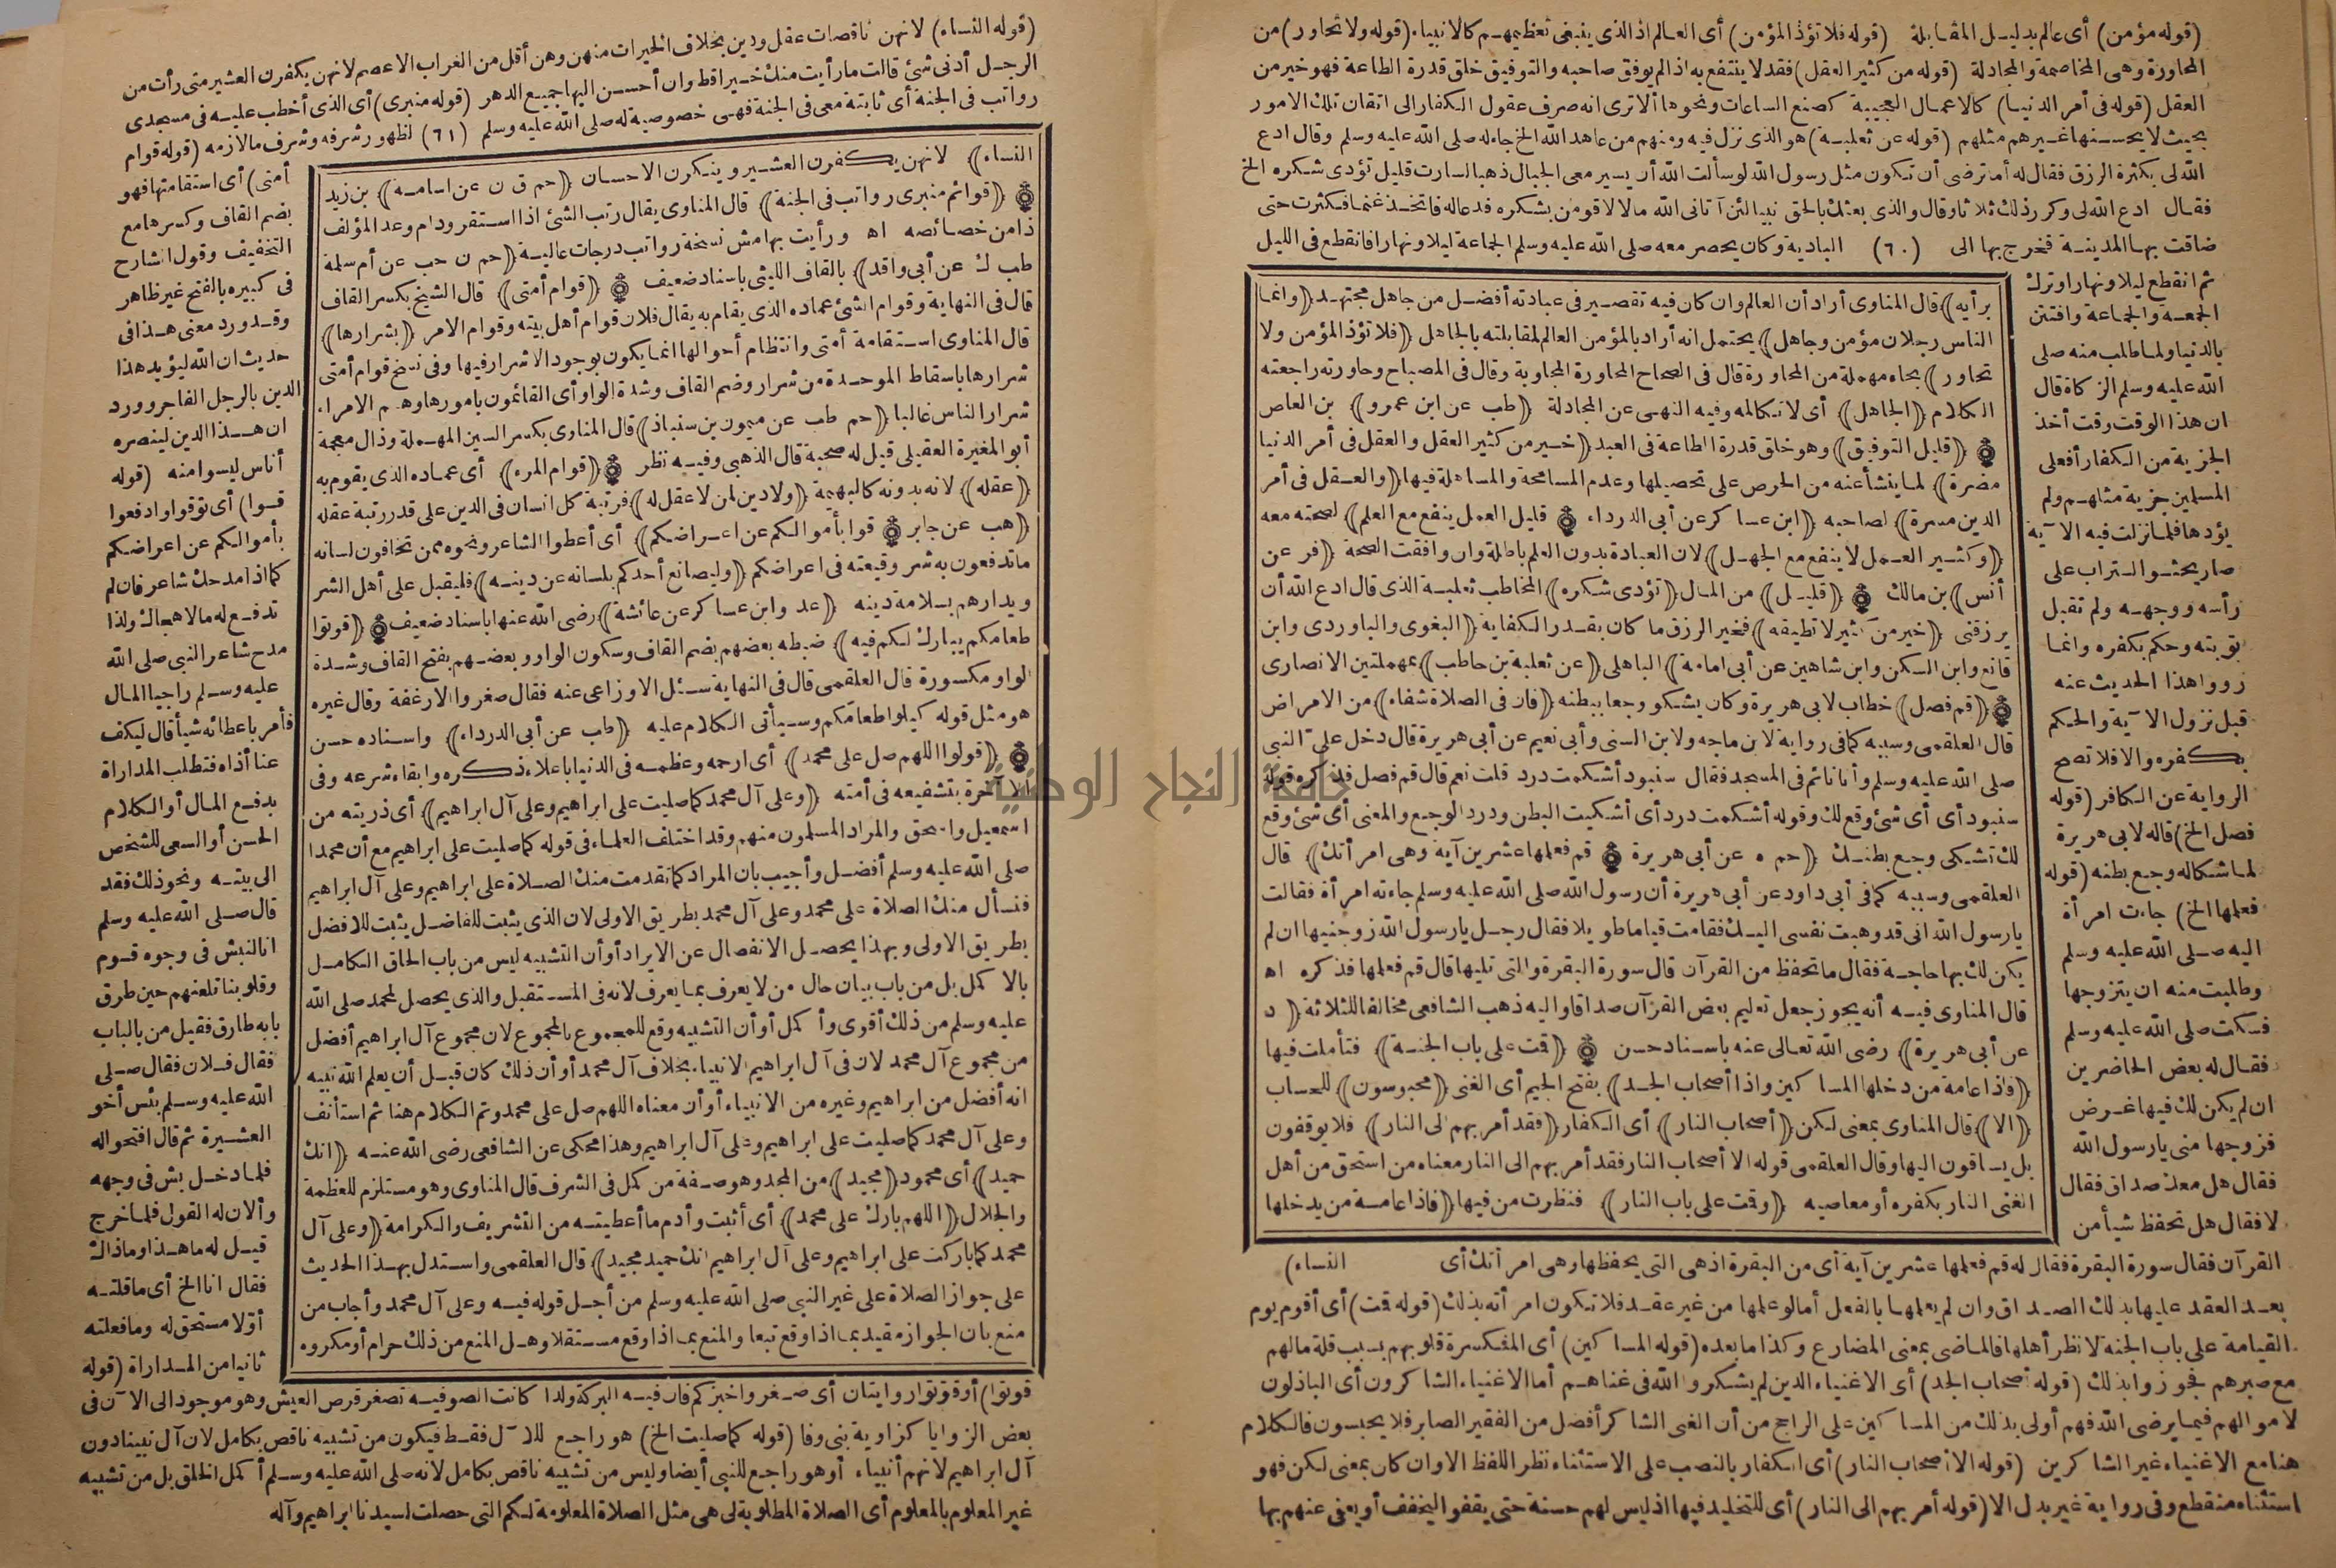 (قوله مؤمن) أى عالم بدليل المقابلة (قوله فلا تؤذ المؤمن) أى العالم اذ الذى ينبغى تعظيمهم كالانبياء. (قوله ولا تحاور) من
المحاورة وهى المخاصمة والمجادلة (قوله من كثير العقل) فقد لا ينتفع به اذا لم يوفق صاحبه والتوفيق خلق قدرة الطاعة فهو خير من
العقل (قوله فى أمر الدنيا) كالاعمال العجيبة كصنع الساعات ونحوها ألا ترى انه صرف عقول الكفار الى اتقان تلك الامور
بحيث لا يحسنها غيرهم مثلهم (قوله عن ثعلبة) هو الذى نزل فيه ومنهم من عاهد الله الخ جاءله صلى الله عليه وسلم وقال ادع
الله لى بكثرة الرزق فقال له أما ترضى أن تكون مثل رسول الله لو سألت الله أن يسير معى الجبال ذهبا لسارت قليل تؤدى شكره الخ
فقال ادع الله لى وكرر ذلك ثلاثا وقال والذى بعثك بالحق نبيا لئن آتانى الله مالا لاقومن بشكره فدعاله فاتخذ غنما فكثرت حتى
ضاقت بها المدينة فخرج بها الى (٦٠) البادية وكان يحضر معه صلى الله عليه وسلم الجماعة ليلا ونهارا فانقطع فى الليل
ثم انقطع ليلا ونهارا وترك
الجمعة والجماعة وافتتن
بالدنيا ولما طلب منه صلى
الله عليه وسلم الزكاة قال
ان هذا الوقت وقت أخذ
الجزية من الكفار أفعلى
المسلمين جزية مثلهم ولم
يؤدها فلما نزلت فيه الآية
صار يحثو التراب على
رأسه ووجهه ولم تقبل
توبته وحكم بكفره وانما
رووا هذا الحديث عنه
قبل نزول الآية والحكم
بكفره والا فلا تصح
الرواية عن الكافر (قوله
فصل الخ) قاله لابى هريرة
لما شكاله وجع بطنه (قوله
فعلمها الخ) جاءت امرأة
اليه صلى الله عليه وسلم
وطلبت منه ان يتزوجها
فسكت صلى الله عليه وسلم
فقال له بعض الحاضرين
ان لم يكن لك فيها غرض
فزوجها منى يا رسول الله
فقال هل معك صداق فقال
لا فقال هل تحفظ شيأ من
برأيه) قال المناوى أراد أن العالم وان كان فيه تقصير فى عبادته أفضل من جاهل مجتهد (وانما
الناس رجلان مؤمن وجاهل) يحتمل انه أراد بالمؤمن العالم لمقابلته بالجاهل (فلا تؤذ المؤمن ولا
تحاور) بحاء مهملة من المحاورة قال فى الصحاح المحاورة المجاوبة وقال فى المصباح وحاورته راجعته
الكلام (الجاهل) أى لا تكالمه وفيه النهى عن المجادلة (طب عن ابن عمرو) بن العاص
(قليل التوفيق) وهو خلق قدرة الطاعة فى العبد (خير من كثير العقل والعقل فى أمر الدنيا
مضرة) لما ينشأ عنه من الحرص على تحصيلها وعدم المسامحة والمساهلة فيها (والعقل فى أمر
الدين مسرة) لصاحبه (ابن عساكر عن أبى الدرداء قليل العمل ينفع مع العلم) لصحته معه
(وكثير العمل لا ينفع مع الجهل) لان العبادة بدون العلم باطلة وان وافقت الصحة (فر عن
أنس) بن مالك (قليل) من المال (تؤدى شكره) المخاطب ثعلبة الذى قال ادع الله أن
يرزقنى (خير من كثير لا تطيقه) فخير الرزق ما كان بقدر الكفاية (البغوى والباوردى وابن
قانع وابن السكن وابن شاهين عن أبى امامة) الباهلى (عن ثعلبة بن حاطب) بمهملتين الانصارى
(قم فصل) خطاب لابى هريرة وكان يشكو وجعا ببطنه (فان فى الصلاة شفاء) من الامراض
قال العلقمى وسببه كما فى رواية لابن ماجه ولابن السنى وأبى نعيم عن أبى هريرة قال دخل على النبى
صلى الله عليه وسلم وأنا نائم فى المسجد فقال سنبود أشكمت درد قلت نعم قال قم فصل فذكره قوله
سنبود أى أى شئ وقع لك وقوله أشكمت درد أى أشكيت البطن ودرد الوجع والمعنى أى شئ وقع
لك تشتكى وجع بطنك (حم ه عن أبى هريرة قم فعلمها عشرين آية وهى امرأتك) قال
العلقمى وسببه كما فى أبى داود عن أبى هريرة أن رسول الله صلى الله عليه وسلم جاءته امرأة فقالت
يا رسول الله انى قد وهبت نفسى اليك فقامت قياما طويلا فقال رجل يا رسول الله زوجنيها ان لم
يكن لك بها حاجة فقال ما تحفظ من القرآن قال سورة البقرة والتى تليها قال قم فعلمها فذكره اه
قال المناوى فيه أنه يجوز جعل تعليم بعض القرآن صداقا واليه ذهب الشافعى مخالفا للثلاثة (د
عن أبى هريرة) رضى الله تعالى عنه باسناد حسن (قمت على باب الجنة) فتأملت فيها
(فاذا عامة من دخلها المساكين واذا أصحاب الجد) بفتح الجيم أى الغنى (محبوسون) للحساب
(الا) قال المناوى بمعنى لكن (أصحاب النار) أى الكفار (فقد أمر بهم الى النار) فلا يوقفون
بل يساقون اليها وقال العلقمى قوله الا أصحاب النار فقد أمر بهم الى النار معناه من استحق من أهل
الغنى النار بكفره أو معاصيه (وقمت على باب النار) فنظرت من فيها (فاذا عامة من يدخلها
القرآن فقال سورة البقرة فقال له قم فعلمها عشرين آية أى من البقرة اذ هى التى يحفظها وهى امرأتك أى النساء)
بعد العقد عليها بذلك الصداق وان لم يعلمها بالفعل أما لو علمها من غير عقد فلا تكون امرأته بذلك (قوله قمت) أى أقوم يوم
القيامة على باب الجنة لانظر أهلها فالماضى بمعنى المضارع وكذا ما بعده (قوله المساكين) أى المنكسرة قلوبهم بسبب قلة مالهم
مع صبرهم فجوزوا بذلك (قوله أصحاب الجد) أى الاغنياء الذين لم يشكروا الله فى غناهم أما الاغنياء الشاكرون أى الباذلون
لاموالهم فيما يرضى الله فهم أولى بذلك من المساكين على الراجح من أن الغنى الشاكر أفضل من الفقير الصابر فلا يحبسون فالكلام
هنا مع الاغنياء غير الشاكرين (قوله الا أصحاب النار) أى الكفار بالنصب على الاستثناء نظرا للفظ الا وان كان بمعنى لكن فهو
استثناء منقطع وفى رواية غير بدل الا (قوله أمر بهم الى النار) أى للتخليد فيها اذ ليس لهم حسنة حتى يقفوا ليخفف أو يعفى عنهم بها
(قوله النساء) لانهن ناقصات عقل ودين بخلاف الخيرات منهن وهن أقل من الغراب الاعصم لانهن يكفرن العشير متى رأت من
الرجل أدنى شئ قالت ما رأيت منك خيرا قط وان أحسن اليها جميع الدهر (قوله منبرى) أى الذى أخطب عليه فى مسجدى
رواتب فى الجنة أى ثابتة معى فى الجنة فهى خصوصية له صلى الله عليه وسلم (٦١) لظهور شرفه وشرف ما لازمه (قوله قوام
النساء) لانهن يكفرن العشير وينكرن الاحسان (حم ق ن عن اسامة) بن زيد
(قوائم منبرى رواتب فى الجنة) قال المناوى يقال رتب الشئ اذا استقر ودام وعد المؤلف
ذا من خصائصه اه ورأيت بهامش نسخة رواتب درجات عالية (حم ن حب عن أم سلمة
طب ك عن أبى واقد) بالقاف الليثى باسناد ضعيف (قوام أمتى) قال الشيخ بكسر القاف
قال فى النهاية وقوام الشئ عماده الذى يقام به يقال فلان قوام أهل بيته وقوام الامر (بشرارها)
قال المناوى استقامة أمتى وانتظام أحوالها انما يكون بوجود الاشرار فيها وفى نسخ قوام أمتى
شرارها باسقاط الموحدة من شرار وضم القاف وشدة الواو أى القائمون بامورها وهم الامراء
شرار الناس غالبا (حم طب عن ميمون بن سنباذ) قال المناوى بكسر السين المهملة وذال معجمة
أبو المغيرة العقيلى قيل له صحبة قال الذهبى وفيه نظر (قوام المرء) أى عماده الذى يقوم به
(عقله) لانه بدونه كالبهيمة (ولا دين لمن لا عقل له) فرتبة كل انسان فى الدين على قدر رتبة عقله
(هب عن جابر قوا بأموالكم عن اعراضكم) أى أعطوا الشاعر ونحوه ممن تخافون لسانه
ما تدفعون به شر وقيعته فى اعراضكم (وليصانع أحدكم بلسانه عن دينه) فليقبل على أهل الشر
ويدارهم بسلامة دينه (عد وابن عساكر عن عائشة) رضى الله عنها باسناد ضعيف (قوتوا
طعامكم يبارك لكم فيه) ضبطه بعضهم بضم القاف وسكون الواو وبعضهم بفتح القاف وشدة
الواو مكسورة قال العلقمى قال فى النهاية سئل الاوزاعى عنه فقال صغروا الارغفة وقال غيره
هو مثل قوله كيلوا طعامكم وسيأتى الكلام عليه (طب عن أبى الدرداء) واسناده حسن
(قولوا اللهم صل على محمد) أى ارحمه وعظمه فى الدنيا باعلاء ذكره وابقاء شرعه وفى
الآخرة بتشفيعه فى أمته (وعلى آل محمد كما صليت على ابراهيم وعلى آل ابراهيم) أى ذريته من
اسمعيل واسحق والمراد المسلمون منهم وقد اختلف العلماء فى قوله كما صليت على ابراهيم مع أن محمدا
صلى الله عليه وسلم أفضل وأجيب بان المراد كما تقدمت منك الصلاة على ابراهيم وعلى آل ابراهيم
فنسأل منك الصلاة على محمد وعلى آل محمد بطريق الاولى لان الذى يثبت للفاضل يثبت للافضل
بطريق الاولى وبهذا يحصل الانفصال عن الايراد أو أن التشبيه ليس من باب الحاق الكامل
بالاكمل بل من باب بيان حال من لا يعرف بما يعرف لانه فى المستقبل والذى يحصل لمحمد صلى الله
عليه وسلم من ذلك أقوى وأكمل أو أن التشبيه وقع للمجموع بالمجموع لان مجموع آل ابراهيم أفضل
من مجموع آل محمد لان فى آل ابراهيم الانبياء بخلاف آل محمد أو أن ذلك كان قبل أن يعلم الله نبيه
انه أفضل من ابراهيم وغيره من الانبياء أو أن معناه اللهم صل على محمد وتم الكلام هنا ثم استأنف
وعلى آل محمد كما صليت على ابراهيم وعلى آل ابراهيم وهذا محكى عن الشافعى رضى الله عنه (انك
حميد) أى محمود (مجيد) من المجد وهو صفة من كمل فى الشرف قال المناوى وهو مستلزم للعظمة
والجلال (اللهم بارك على محمد) أى أثبت وأدم ما أعطيته من التشريف والكرامة (وعلى آل
محمد كما باركت على ابراهيم وعلى آل ابراهيم انك حميد مجيد) قال العلقمى واستدل بهذا الحديث
على جواز الصلاة على غير النبى صلى الله عليه وسلم من أجل قوله فيه وعلى آل محمد وأجاب من
منع بان الجواز مقيد بما اذا وقع تبعا والمنع بما اذا وقع مستقلا وهل المنع من ذلك حرام أو مكروه
أمتى) أى استقامتها فهو
بضم القاف وكسرها مع
التخفيف وقول الشارح
فى كبيره بالفتح غير ظاهر
وقد ورد معنى هذا فى
حديث ان الله ليؤيد هذا
الدين بالرجل الفاجر وورد
ان هذا الدين لينصره
أناس ليسوا منه (قوله
قوا) أى توقوا وادفعوا
بأموالكم عن اعراضكم
كما اذا مدحك شاعر فان لم
تدفع له مالا هجاك ولذا
مدح شاعر النبى صلى الله
عليه وسلم راجيا المال
فأمر باعطائه شيأ قال ليكف
عنا أذاه فتطلب المداراة
بدفع المال أو الكلام
الحسن أو السعى للشخص
الى بيته ونحو ذلك فقد
قال صلى الله عليه وسلم
انا لنبش فى وجوه قوم
وقلوبنا تلعنهم حين طرق
بابه طارق فقيل من بالباب
فقال فلان فقال صلى
الله عليه وسلم بئس أخو
العشيرة ثم قال افتحوا له
فلما دخل بش فى وجهه
وألان له القول فلما خرج
قيل له ما هذا وما ذاك
فقال انا الخ أى ما قلته
أولا مستحق له وما فعلته
ثانيا من المداراة (قوله
قوتوا) أو قوتوا روايتان أى صغروا خبزكم فان فيه البركة ولذا كانت الصوفية تصغر قرص العيش وهو موجود الى الآن فى
بعض الزوايا كزاوية بنى وفا (قوله كما صليت الخ) هو راجع للآل فقط فيكون من تشبيه ناقص بكامل لان آل نبينا دون
آل ابراهيم لانهم أنبياء أو هو راجع للنبى أيضا وليس من تشبيه ناقص بكامل لانه صلى الله عليه وسلم أكمل الخلق بل من تشبيه
غير المعلوم بالمعلوم أى الصلاة المطلوبة لى هى مثل الصلاة المعلومة لكم التى حصلت لسيدنا ابراهيم وآله
جامعة النجاح الوطنية